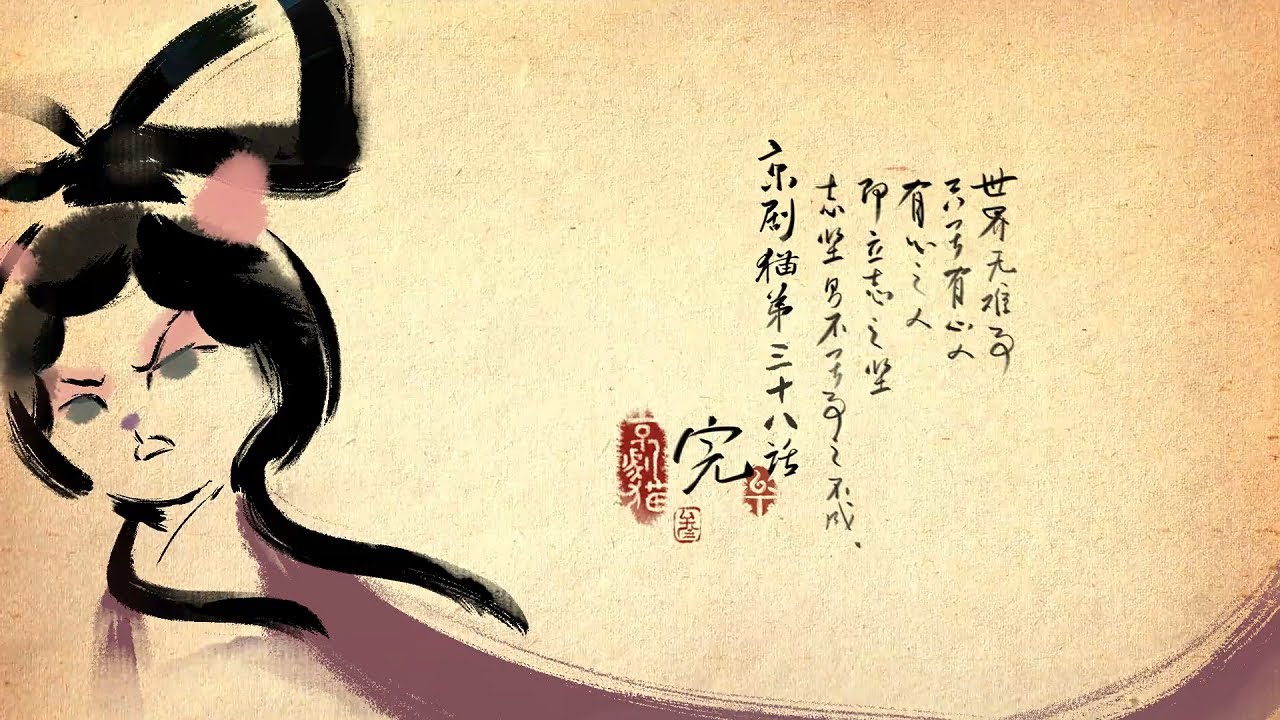 世界无难事
只畏有心人
有心之人
即立志之坚
志坚则不畏事之不成、
京剧猫第三十八话
完
京劇猫